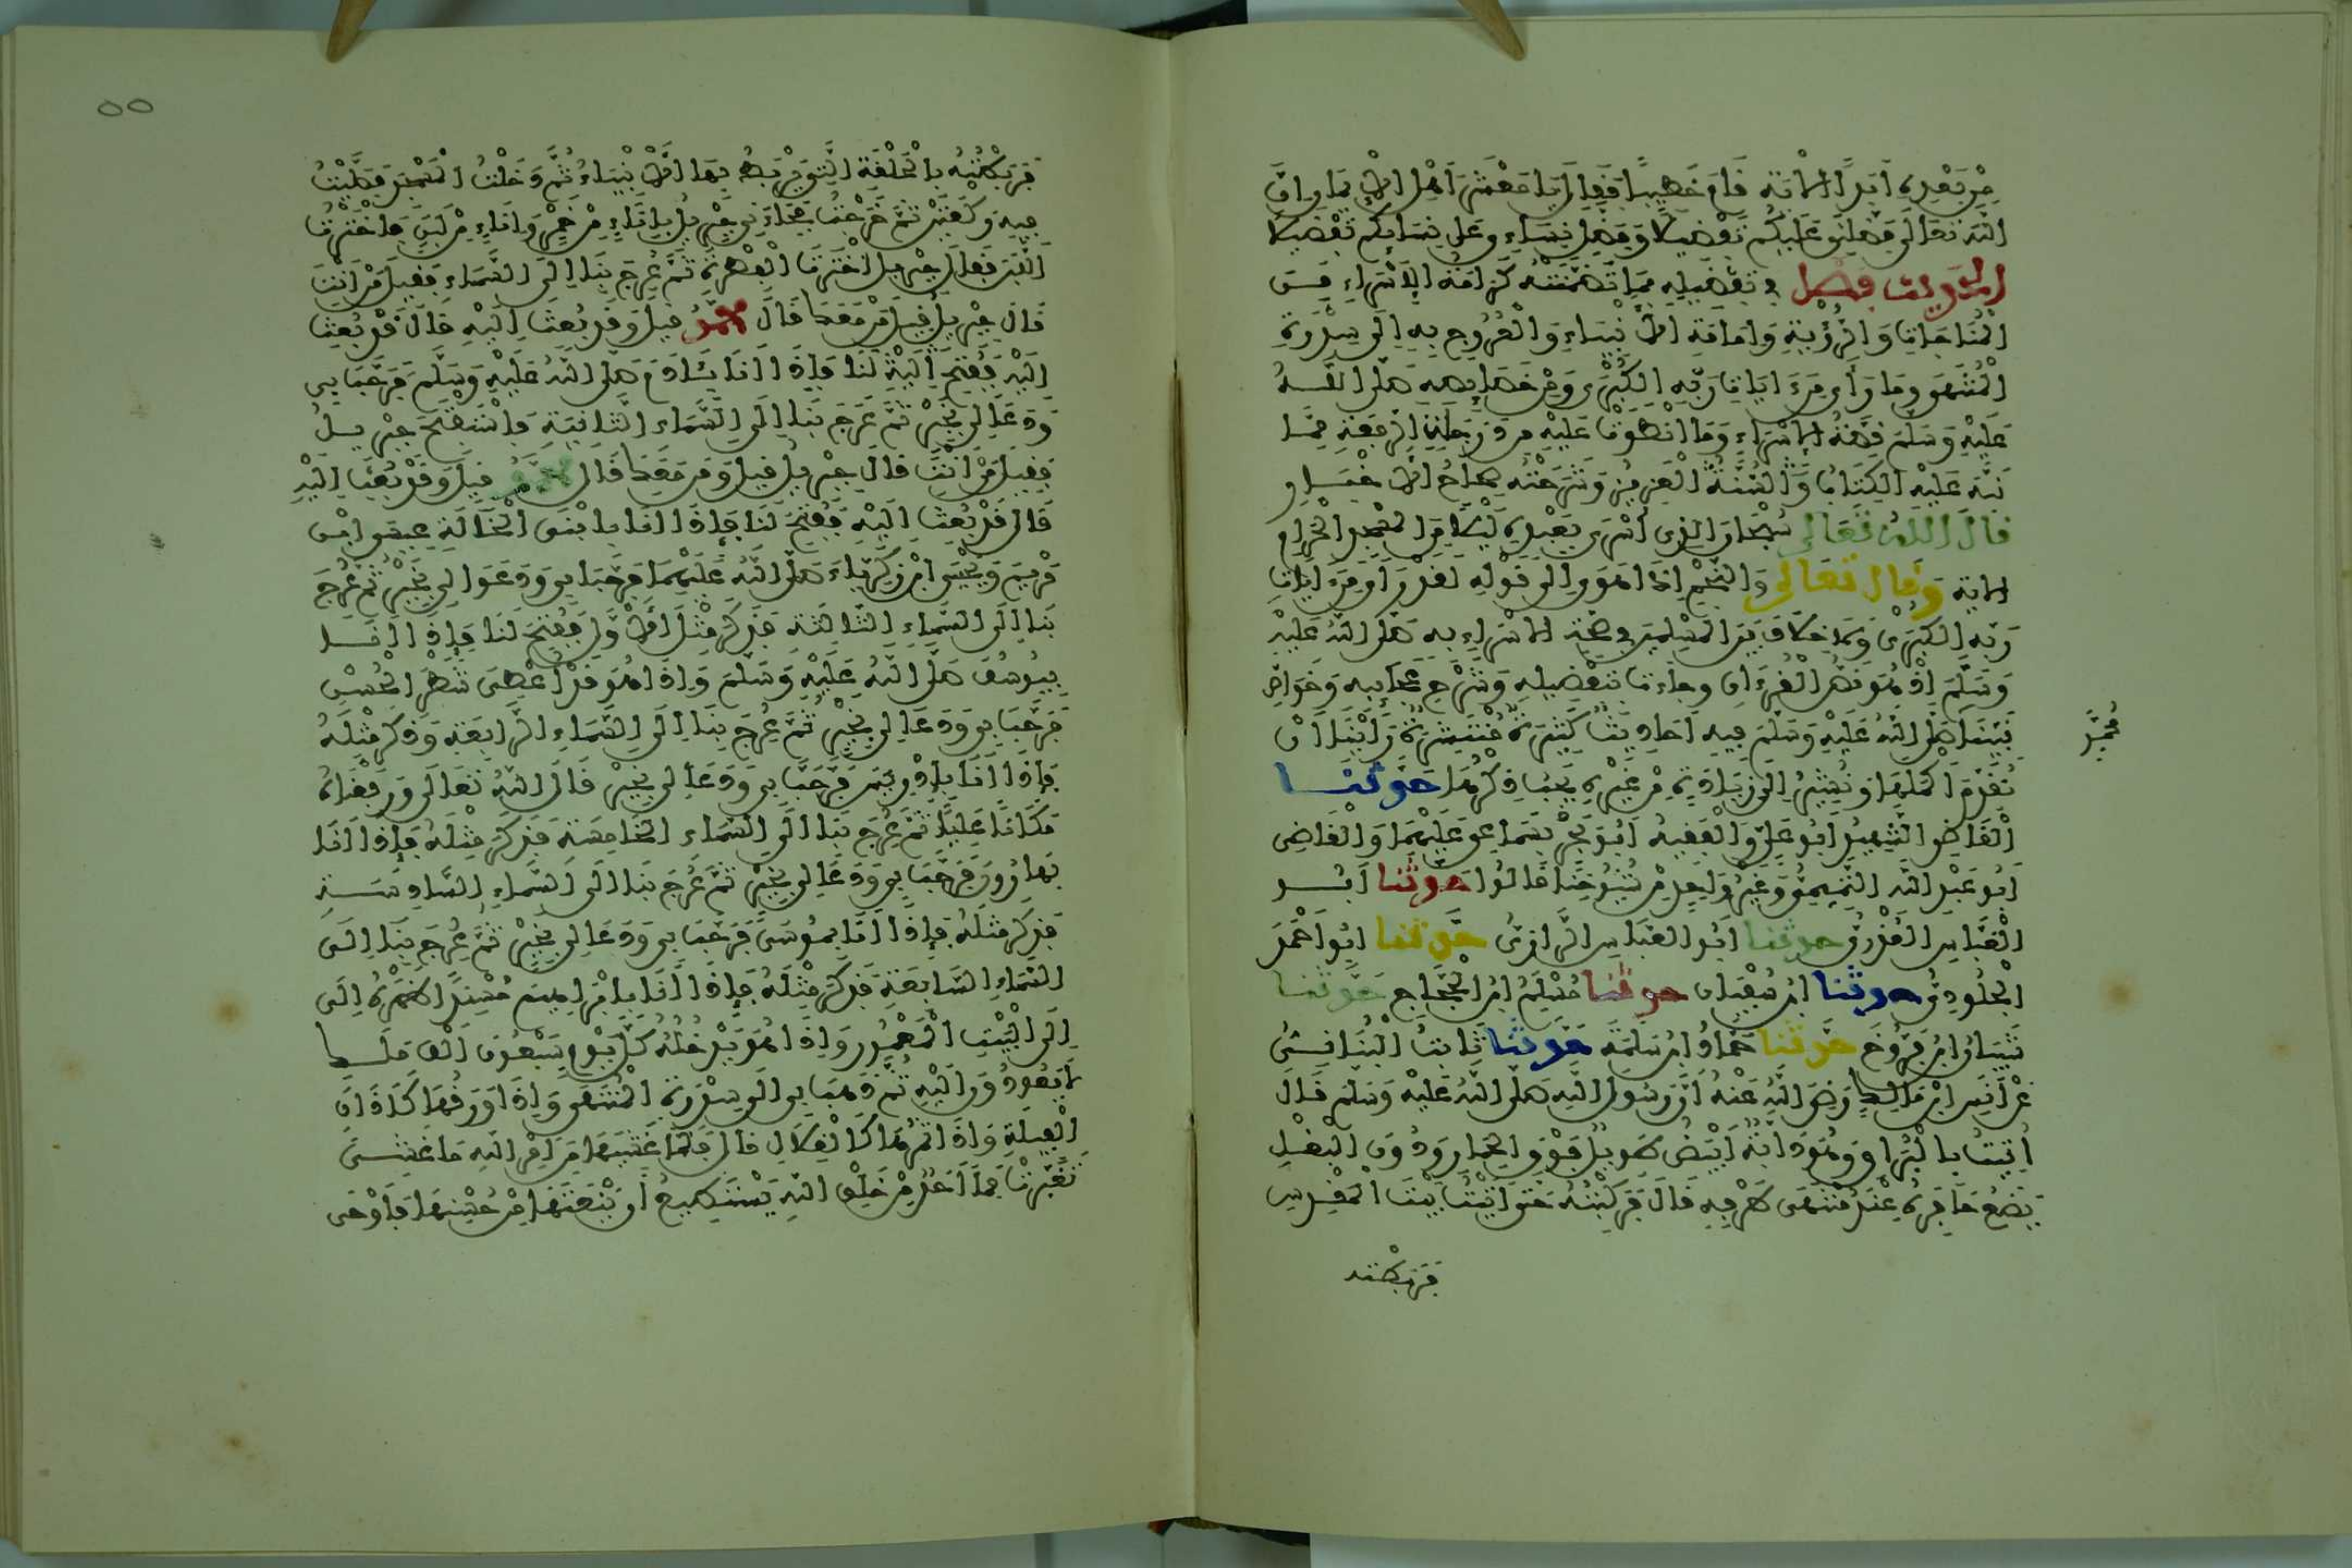 مِنْ بَعْدِهِ أَبَدًا الاية قَامَ خَطِيبًا فَقَالَ يَا مَعْشَرَ أَهْلِ الإِيمَانِ إِنَّ
اللَّهَ تَعَالَى فَضَّلَنِي عَلَيْكُمْ تَفْضِيلًا وَفَضَّلَ نِسَاءِي عَلَى نِسَائِكُمْ تَفْضِيلًا
الحديث فصل في تفضيله بِمَا تَضَمَّنَتْهُ كَرَامَةُ الإِسْرَاءِ مِنَ
الْمُنَاجَاةِ وَالرُّؤْيَةِ وَإِمَامَةِ الأَنْبِيَاءِ وَالْعُرُوجِ بِهِ إِلَى سِدْرَةِ
الْمُنْتَهَى وَمَا رَأَى مِنْ ءَايَاتِ رَبِّهِ الْكُبْرَى وَمِنْ خَصَائِصِهِ صَلَّى اللَّهُ
عَلَيْهِ وَسَلَّمَ قِصَّةُ الإسْرَاءِ وَمَا انْطَوَتْ عَلَيْهِ مِن دَرَجَاتِ الرِّفْعَةِ مِمَّا
نَبَّهَ عَلَيْهِ الْكِتَابُ الْعَزِيزُ وَشَرَحَتْهُ صِحَاحُ الأَخْبَارِ
قال الله تعالى سُبْحَانَ الذِي أَسْرَى بِعَبْدِهِ لَيْلًا مِنَ الْمَسْجِدِ الْحَرَامِ
الاية وقال تعالى وَالنَّجْمِ إِذَا هَوَى إِلَى قَوْلِهِ لَقَدْ رَأَى مِنْ آيَاتِ
رَبِّهِ الْكُبْرَى وَلَا خِلَافَ بَيْنَ الْمُسْلِمِينَ فِي صِحَّةِ الإسْرَاءِ بِهِ صَلَّى اللَّهُ عَلَيْهِ
وَسَلَّمَ إِذْ هُوَ نَصُّ الْقُرْءَانِ وَجَاءَتْ بِتَفْضِيلِهِ وَشَرْحِ عَجَائِبِهِ وَخَوَاصِّ
نَبِيِّنَا صَلَّى اللَّهُ عَلَيْهِ وَسَلَّمَ فِيهِ أَحَادِيثُ كَثِيرَةٌ مُنْتَشِرَةٌ رَأَيْنَا أَنْ
نُقَدِّمَ أَكْمَلَهَا وَنُشِيرَ إِلَى زِيَادَةٍ مِنْ غَيْرِهِ يَجِبُ ذِكْرُهَا حدثنا
الْقَاضِي الشَّهِيدُ أَبُو عَلِيٍّ وَالْفَقِيهُ أَبُو بَحْرٍ بِسَمَاعِي عَلَيْهِمَا وَالْقَاضِي
أَبُو عَبْدِ اللَّهِ التَّمِيمِيُّ وَغَيْرُ وَاحِدٍ مِنْ شُيُوخِنَا قَالُوا حدثنا أَبُو
الْعَبَّاسِ الْعُذْرِيُّ حدثنا أَبُو الْعَبَّاسِ الرَّازِيُّ حدثنا أَبُو أَحْمَدَ
الْجُلُودِيُّ حدثنا ابْنُ سُفْيَانَ حدثنا مُسْلِمُ ابْنُ الْحَجَّاجِ حدثنا
شَيْبَانُ ابْنُ فَرُّوخَ حدثنا حَمَّادُ ابْنُ سَلَمَةَ حدثنا ثَابِتُ الْبُنَانِيُّ
عَنْ أَنَسِ ابْنِ مَالِكٍ رَضِيَ اللَّهُ عَنْهُ أَنَّ رَسُولَ اللَّهِ صَلَّى اللَّهُ عَلَيْهِ وَسَلَّمَ قَالَ
أُتِيتُ بِالْبُرَاقِ وَهُوَ دَابَّةٌ أَبْيَضُ طَوِيلٌ فَوْقَ الْحِمَارِ وَدُونَ الْبَغْلِ
يَضَعُ حَافِرَهُ عِنْدَ مُنْتَهَى طَرْفِهِ قَالَ فَرَكِبْتُهُ حَتَّى أَتَيْتُ بَيْتَ الْمَقْدِسِ
فَرَبَطْتُه
٥٥
فَرَبَطْتُهُ بِالْحَلْقَةِ الَّتِي يَرْبِطُ بِهَا الأَنْبِيَاءُ ثُمَّ دَخَلْتُ الْمَسْجِدَ فَصَلَّيْتُ
فِيهِ رَكْعَتَيْنِ ثُمَّ خَرَجْتُ فَجَاءَنِي جِبْرِيلُ بِإِنَاءٍ مِنْ خَمْرٍ وَإِنَاءٍ مِنْ لَبَنٍ فَاخْتَرْتُ
اللَّبَنَ فَقَالَ جِبْرِيلُ اخْتَرْتَ الْفِطْرَةَ ثُمَّ عُرِجَ بِنَا إِلَى السَّمَاءِ فَقِيلَ مَنْ أَنْتَ
قَالَ جِبْرِيلُ قِيلَ وَمَنْ مَعَكَ قَالَ محمد قِيلَ وَقَدْ بُعِثَ إِلَيْهِ قَالَ قَدْ بُعِثَ
إِلَيْهِ فَفُتِحَ لَنَا فَإِذَا أَنَا بِئَادَمَ صَلَّى اللَّهُ عَلَيْهِ وَسَلَّمَ فَرَحَّبَ بِي
وَدَعَا لِي بِخَيْرٍ ثُمَّ عَرَجَ بِنَا إِلَى السَّمَاءِ الثَّانِيَةِ فَاسْتَفْتَحَ جِبْرِيلُ
فَقِيلَ مَنْ أَنْتَ قَالَ جِبْرِيلُ قِيلَ وَمَنْ مَعَكَ قَالَ محمد قِيلَ وَقَدْ بُعِثَ إِلَيْهِ
قَالَ قَدْ بُعِثَ إِلَيْهِ فَفُتِحَ لَنَا فَإِذَا أَنَا بِابْنَيِ الْخَالَةِ عِيسَى ابْنِ
مَرْيَمَ وَيَحْيَى ابْنِ زَكَرِيَّاءَ صَلَّى اللَّهُ عَلَيْهِمَا فَرَحَّبَا بِي وَدَعَوَا لِي بِخَيْرٍ ثُمَّ عُرِجَ
بِنَا إِلَى السَّمَاءِ الثَّالِثَةِ فَذَكَرَ مِثْلَ الأَوَّلِ فَفُتِحَ لَنَا فَإِذَا أَنَا
بِيُوسُفَ صَلَّى اللَّهُ عَلَيْهِ وَسَلَّمَ وَإِذَا هُوَ قَدْ أُعْطِيَ شَطْرَ الْحُسْنِ
فَرَحَّبَ بِي وَدَعَا لِي بِخَيْرٍ ثُمَّ عُرِجَ بِنَا إِلَى السَّمَاءِ الرَّابِعَةِ وَذَكَرَ مِثْلَهُ
فَإِذَا أَنَا بِإِدْرِيسَ فَرَحَّبَ بِي وَدَعَا لِي بِخَيْرٍ قَالَ اللَّهُ تَعَالَى وَرَفَعْنَاهُ
مَكَانًا عَلِيًّا ثُمَّ عُرِجَ بِنَا إِلَى السَّمَاءِ الْخَامِسَةِ فَذَكَرَ مِثْلَهُ فَإِذَا أَنَا
بِهَارُونَ فَرَحَّبَ بِي وَدَعَا لِي بِخَيْرٍ ثُمَّ عُرِجَ بِنَا إِلَى السَّمَاءِ السَّادِسَةِ
فَذَكَرَ مِثْلَهُ فَإِذَا أَنَا بِمُوسَى فَرَحَّبَ بِي وَدَعَا لِي بِخَيْرٍ ثُمَّ عُرِجَ بِنَا إِلَى
السَّمَاءِ السَّابِعَةِ فَذَكَرَ مِثْلَهُ فَإِذَا أَنَا بِإِبْرَاهِيمَ مُسْنِدًا ظَهْرَهُ إِلَى
إِلَى الْبَيْتِ الْمَعْمُورِ وَإِذَا هُوَ يَدْخُلُهُ كُلَّ يَوْمٍ سَبْعُونَ أَلْفَ مَلَكٍ
لَا يَعُودُونَ إِلَيْهِ ثُمَّ ذَهَبَ بِي إِلَى سِدْرَةِ الْمُنْتَهَى وَإِذَا وَرَقُهَا كَئَاذَانِ
الْفِيلَةِ وَإِذَا ثَمَرُهَا كَالْقِلَالِ قَالَ فَلَمَّا غَشِيَهَا مِنْ أَمْرِ اللَّهِ مَا غَشِيَ
تَغَيَّرَتْ فَمَا أَحَدٌ مِنْ خَلْقِ اللَّهِ يَسْتَطِيعُ أَنْ يَنْعَتَهَا مِنْ حُسْنِهَا فَأَوْحَى